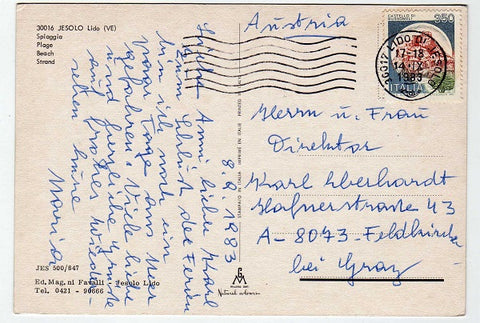 30016 JESOLO Lido (VE)
Spiaggia
Plage
Beach
Strand
8.9.1983
Liebe Anni, lieber Karl
Zum Schluß der Ferien
bin ich noch ein
paar Tage ans Meer
gefahren. Viele liebe
und herzliche Grüsse
und frohes Wieder-
sehen
Maria
JES 500/847
Ed. Mag. ni Favalli - Jesolo Lido
Tel. 0421 - 90666
Austria
CASTELLO DI
350
ITALIA
30012 LIDO DI JESOLO
17-18
14.IX
1983
Herrn u. Frau
Direktor
Karl Eberhardt
Hafnerstrasse 43
A-8073-Feldkirchen
bei Graz